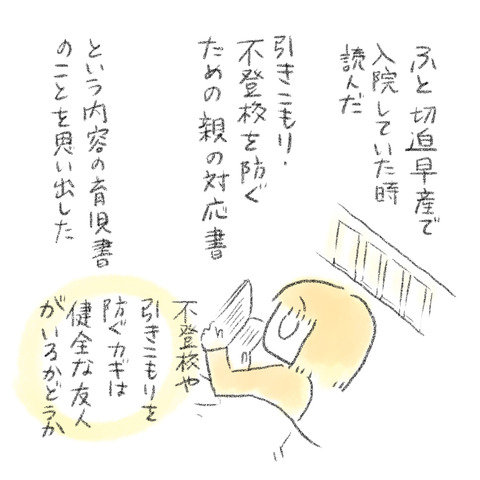 ふと切迫早産で
入院していた時
読んだ
引きこもり・
不登校を防ぐ
ための親の対応書
という内容の育児書
のことを思い出した
不登校や
引きこもりを
防ぐカギは
健全な友人
がいるかどうか